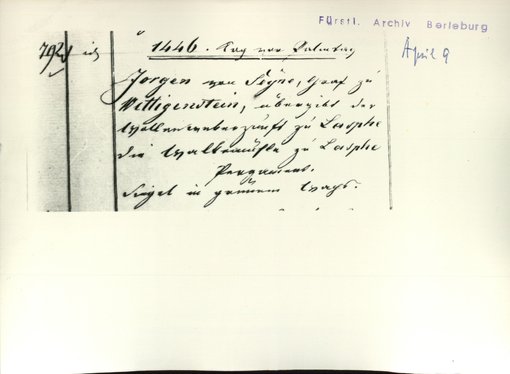 Fürstl. Archiv Berleburg
April 9
792
1446. Tag vor Palmtag
Jorgen von Seyne, Graf zu
Wittigenstein, übergibt der
Wollenweberzunft zu Lasphe
die Walkmühle zu Lasphe
Pergament.
Siegel in grünem Wachs.